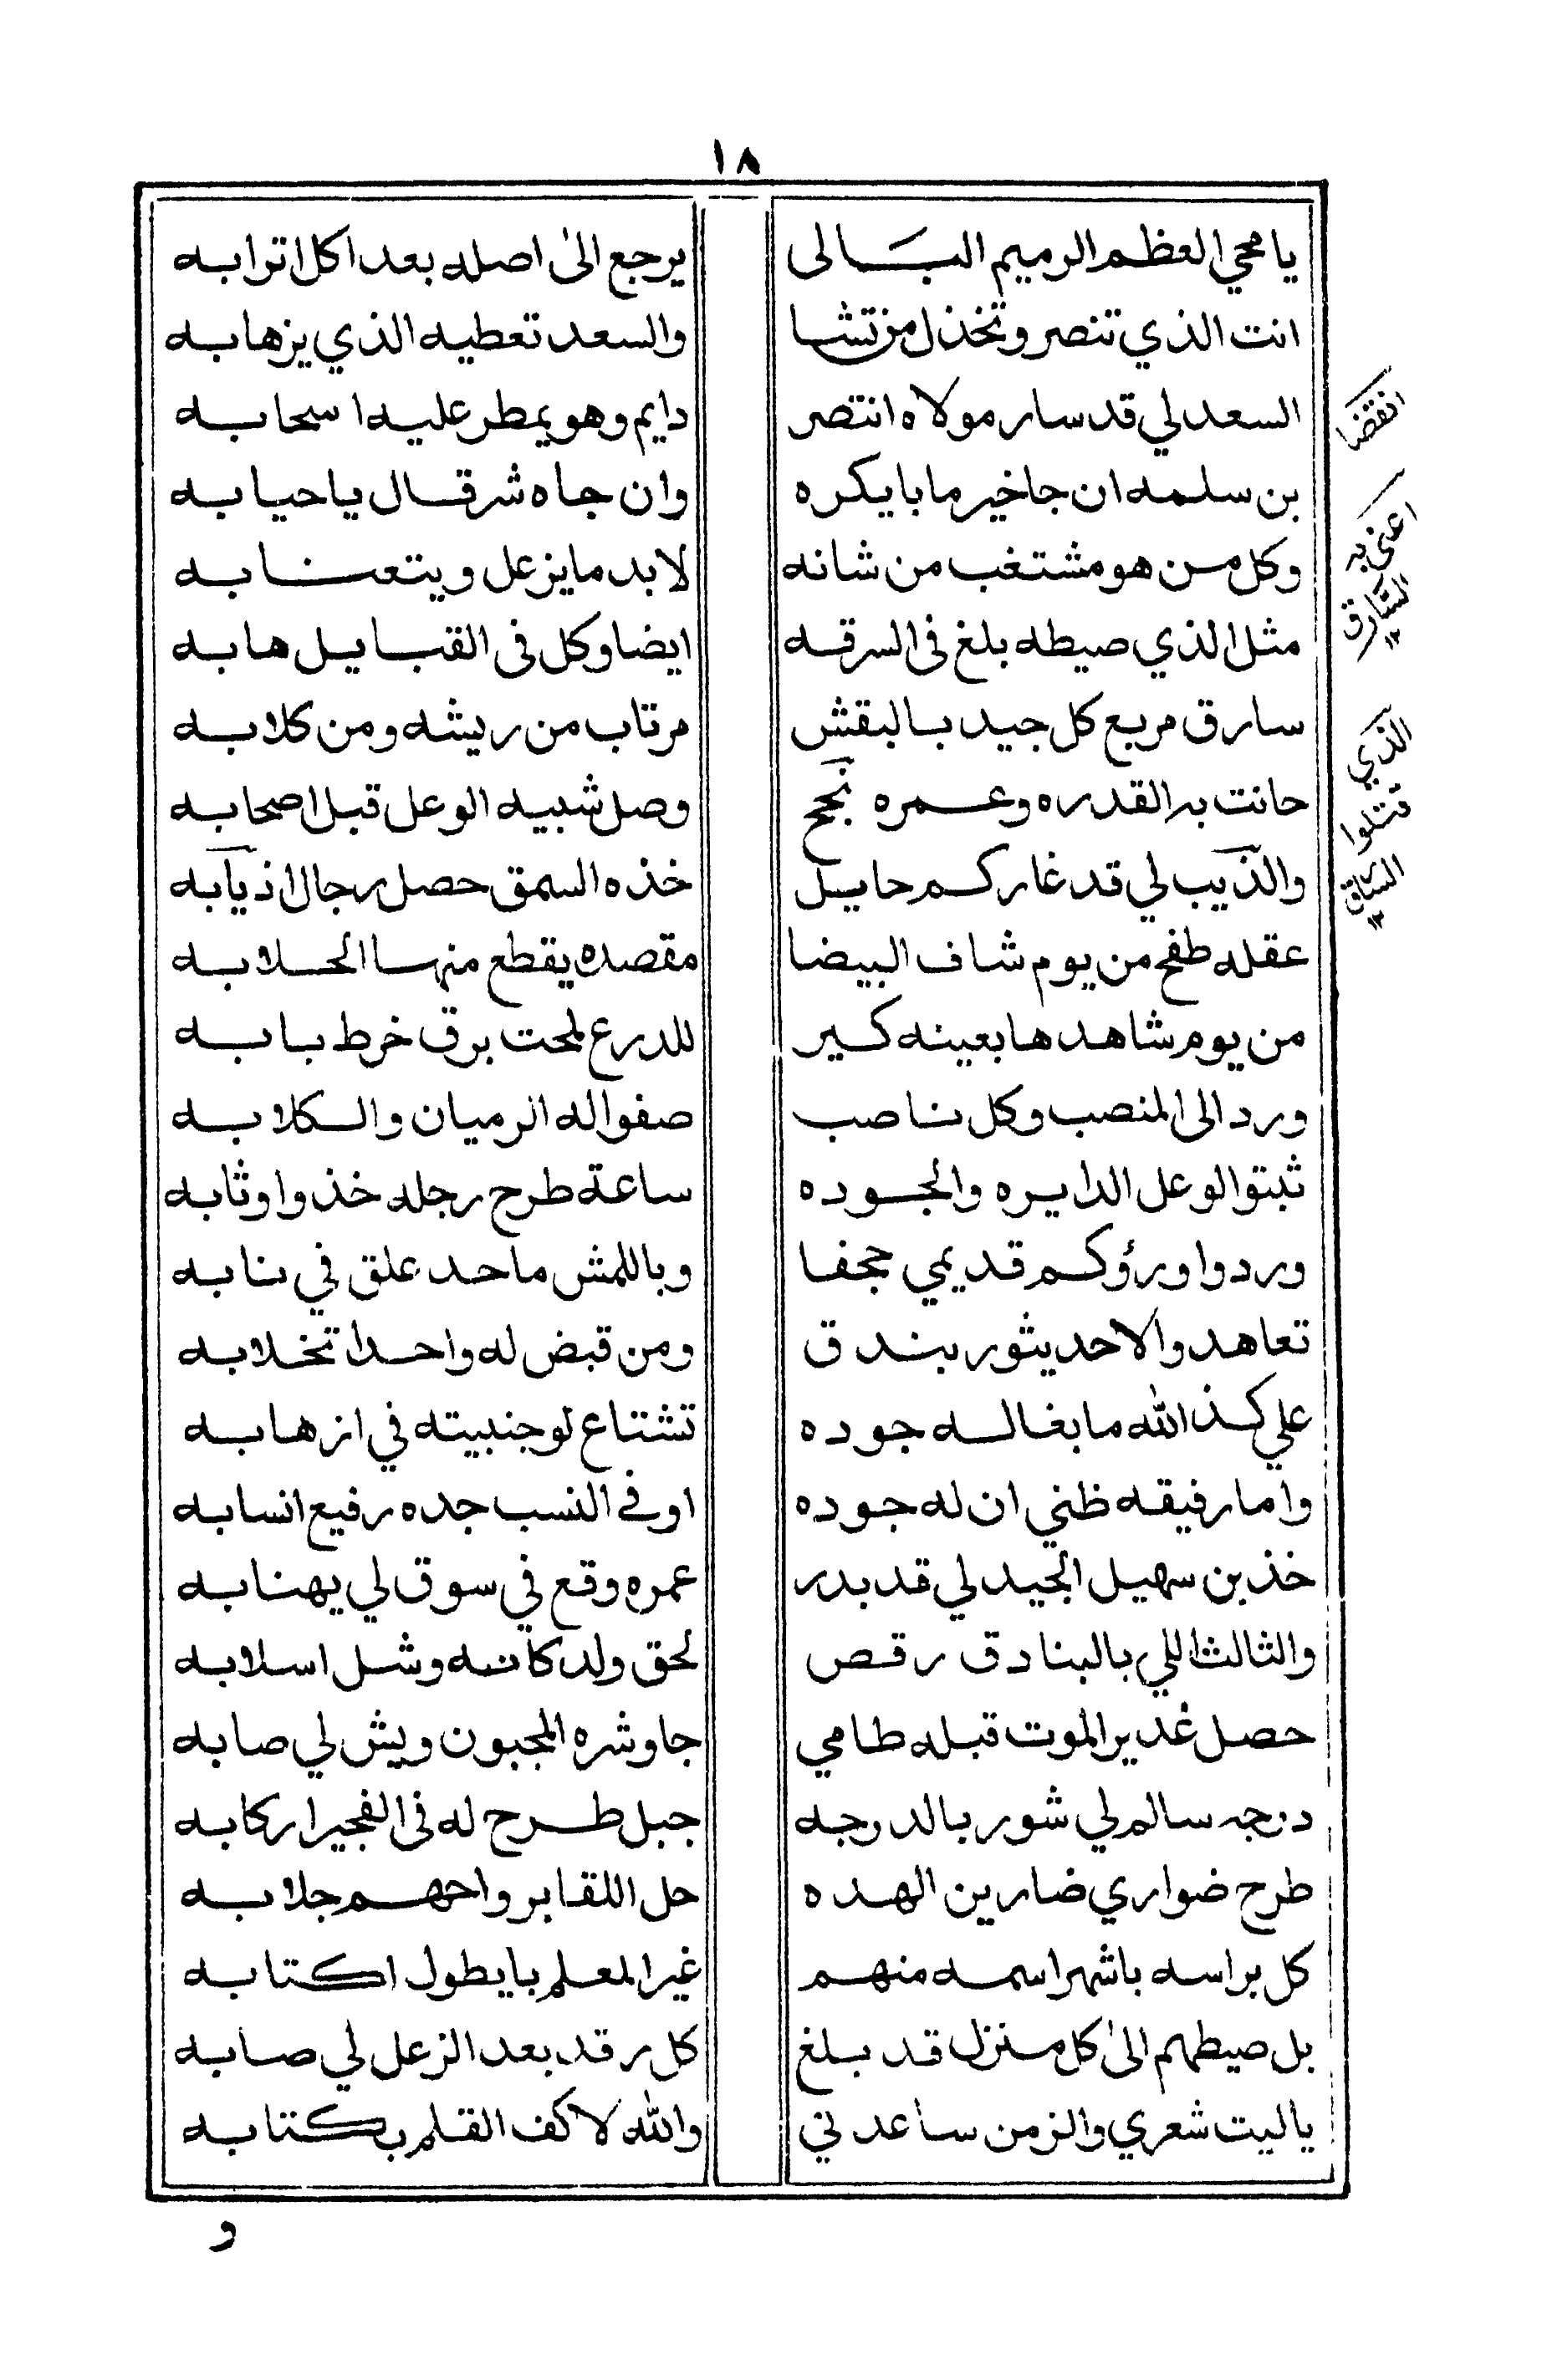 ١٨
يا محي العظم الرميم البالى يرجع الىٰ اصله بعد اكل اترابه
انت الذي تنصر وتخذل من تشا والسعد تعطيه الذي يزها به
السعد لي قد سار مولاه انتصر دايم وهو يمطر عليه اسحابه
بن سلمه ان جا خير ما بايكره وان جاه شر قال يا حيا به
وكل من هو مشتغب من شانه لابد ما يزعل ويتعنا به
مثل الذي صيطه بلغ فى السرقه ايضا وكل فى القبايل هابه
سارق مربع كل جيد بالبقش مرتاب من ريشه ومن كلابه
حانت به القدره وعمره نجح وصل شبيه الوعل قبل اصحابه
والذيب لي قد غار كم حايل خذه السمق حصل رجال اذيابه
عقله طفح من يوم شاف البيضا مقصده يقطع منها الحلابه
من يوم شاهدها بعينه كير للدرع لمحت برق خرط بابه
ورد الى المنصب وكل ناصب صفوا له الرميان والكلابه
ثبتو الوعل الدايره والجوده ساعة طرح رجله خذوا وثابه
وردوا ورؤكم قديمي حجفا وباللمش ما حد علق في نابه
تعاهدو الاحد يثور بندق ومن قبض له واحدا تخلابه
علي كذ الله ما بغاله جوده تشتاع لو جنبيته في ازهابه
واما رفيقه ظني ان له جوده اوفے النسب جده رفيع انسابه
خذ بن سهيل الجيد لي قد بدر عمره وقع في سوق لي يهنا به
والثالث اللي بالبنادق رقص لحق ولد كانه وشل اسلابه
حصل غدير الموت قبله طامي جاوشره المجبون ويش لي صابه
درجه سالم لي شور بالدرجه جبل طرح له فى الفجير اركابه
طرح ضواري ضارين الهده حل اللقابر واحهم جلابه
كل براسه باشهر اسمه منهم غير المعلم بايطول اكتابه
بل صيطهم الىٰ كل منزل قد بلغ كل رقد بعد الزعل لي صابه
يا ليت شعري والزمن ساعدني والله لا كف القلم بكتابه
انقضا
اعنى به
السارق
١٢
الذي
قتلوا
السارق
١٢
و